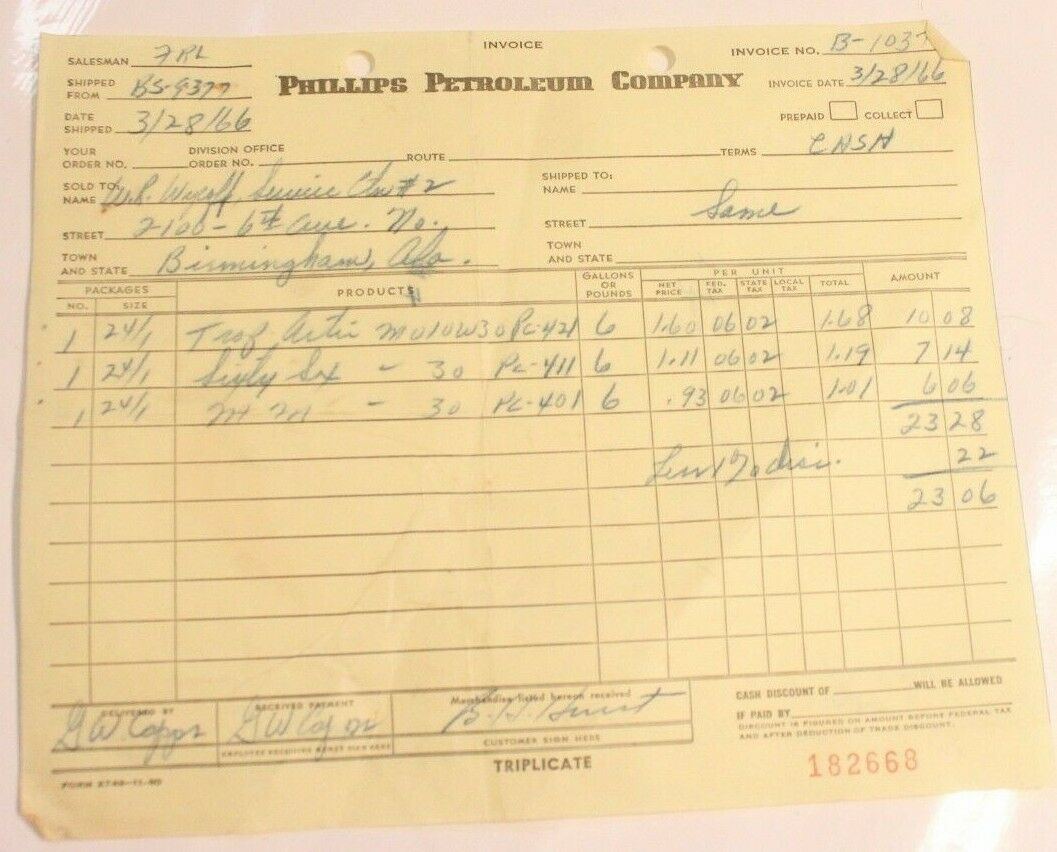 INVOICE
SALESMAN FRL
INVOICE NO. B-103
SHIPPED FROM BS-9377
PHILLIPS PETROLEUM COMPANY
INVOICE DATE 3/28/66
DATE SHIPPED 3/28/66
PREPAID COLLECT
YOUR ORDER NO. DIVISION OFFICE ORDER NO. ROUTE TERMS CASH
SOLD TO: NAME W.R. Wycoff Service #2
SHIPPED TO: NAME
STREET 2100-6th Ave. No.
STREET Same
TOWN AND STATE Birmingham, Ala.
TOWN AND STATE
PACKAGES PRODUCTS GALLONS OR POUNDS PER UNIT AMOUNT
NO. SIZE NET PRICE FED. TAX STATE TAX LOCAL TAX TOTAL
1 24/1 Trop Artic MO 10W30 PC-421 6 1.60 06 02 1.68 10 08
1 24/1 Sixty Six - 30 PC-411 6 1.11 06 02 1.19 7 14
1 24/1 - 30 PC-401 6 .93 06 02 1.01 6 06
23 28
Less 1% disc. 22
23 06
DELIVERED BY RECEIVED PAYMENT Merchandise listed hereon received
CASH DISCOUNT OF WILL BE ALLOWED
IF PAID BY
DISCOUNT IS FIGURED ON AMOUNT BEFORE FEDERAL TAX
AND AFTER DEDUCTION OF TRADE DISCOUNT.
EMPLOYEE RECEIVING MONEY SIGN HERE
CUSTOMER SIGN HERE
TRIPLICATE
182668